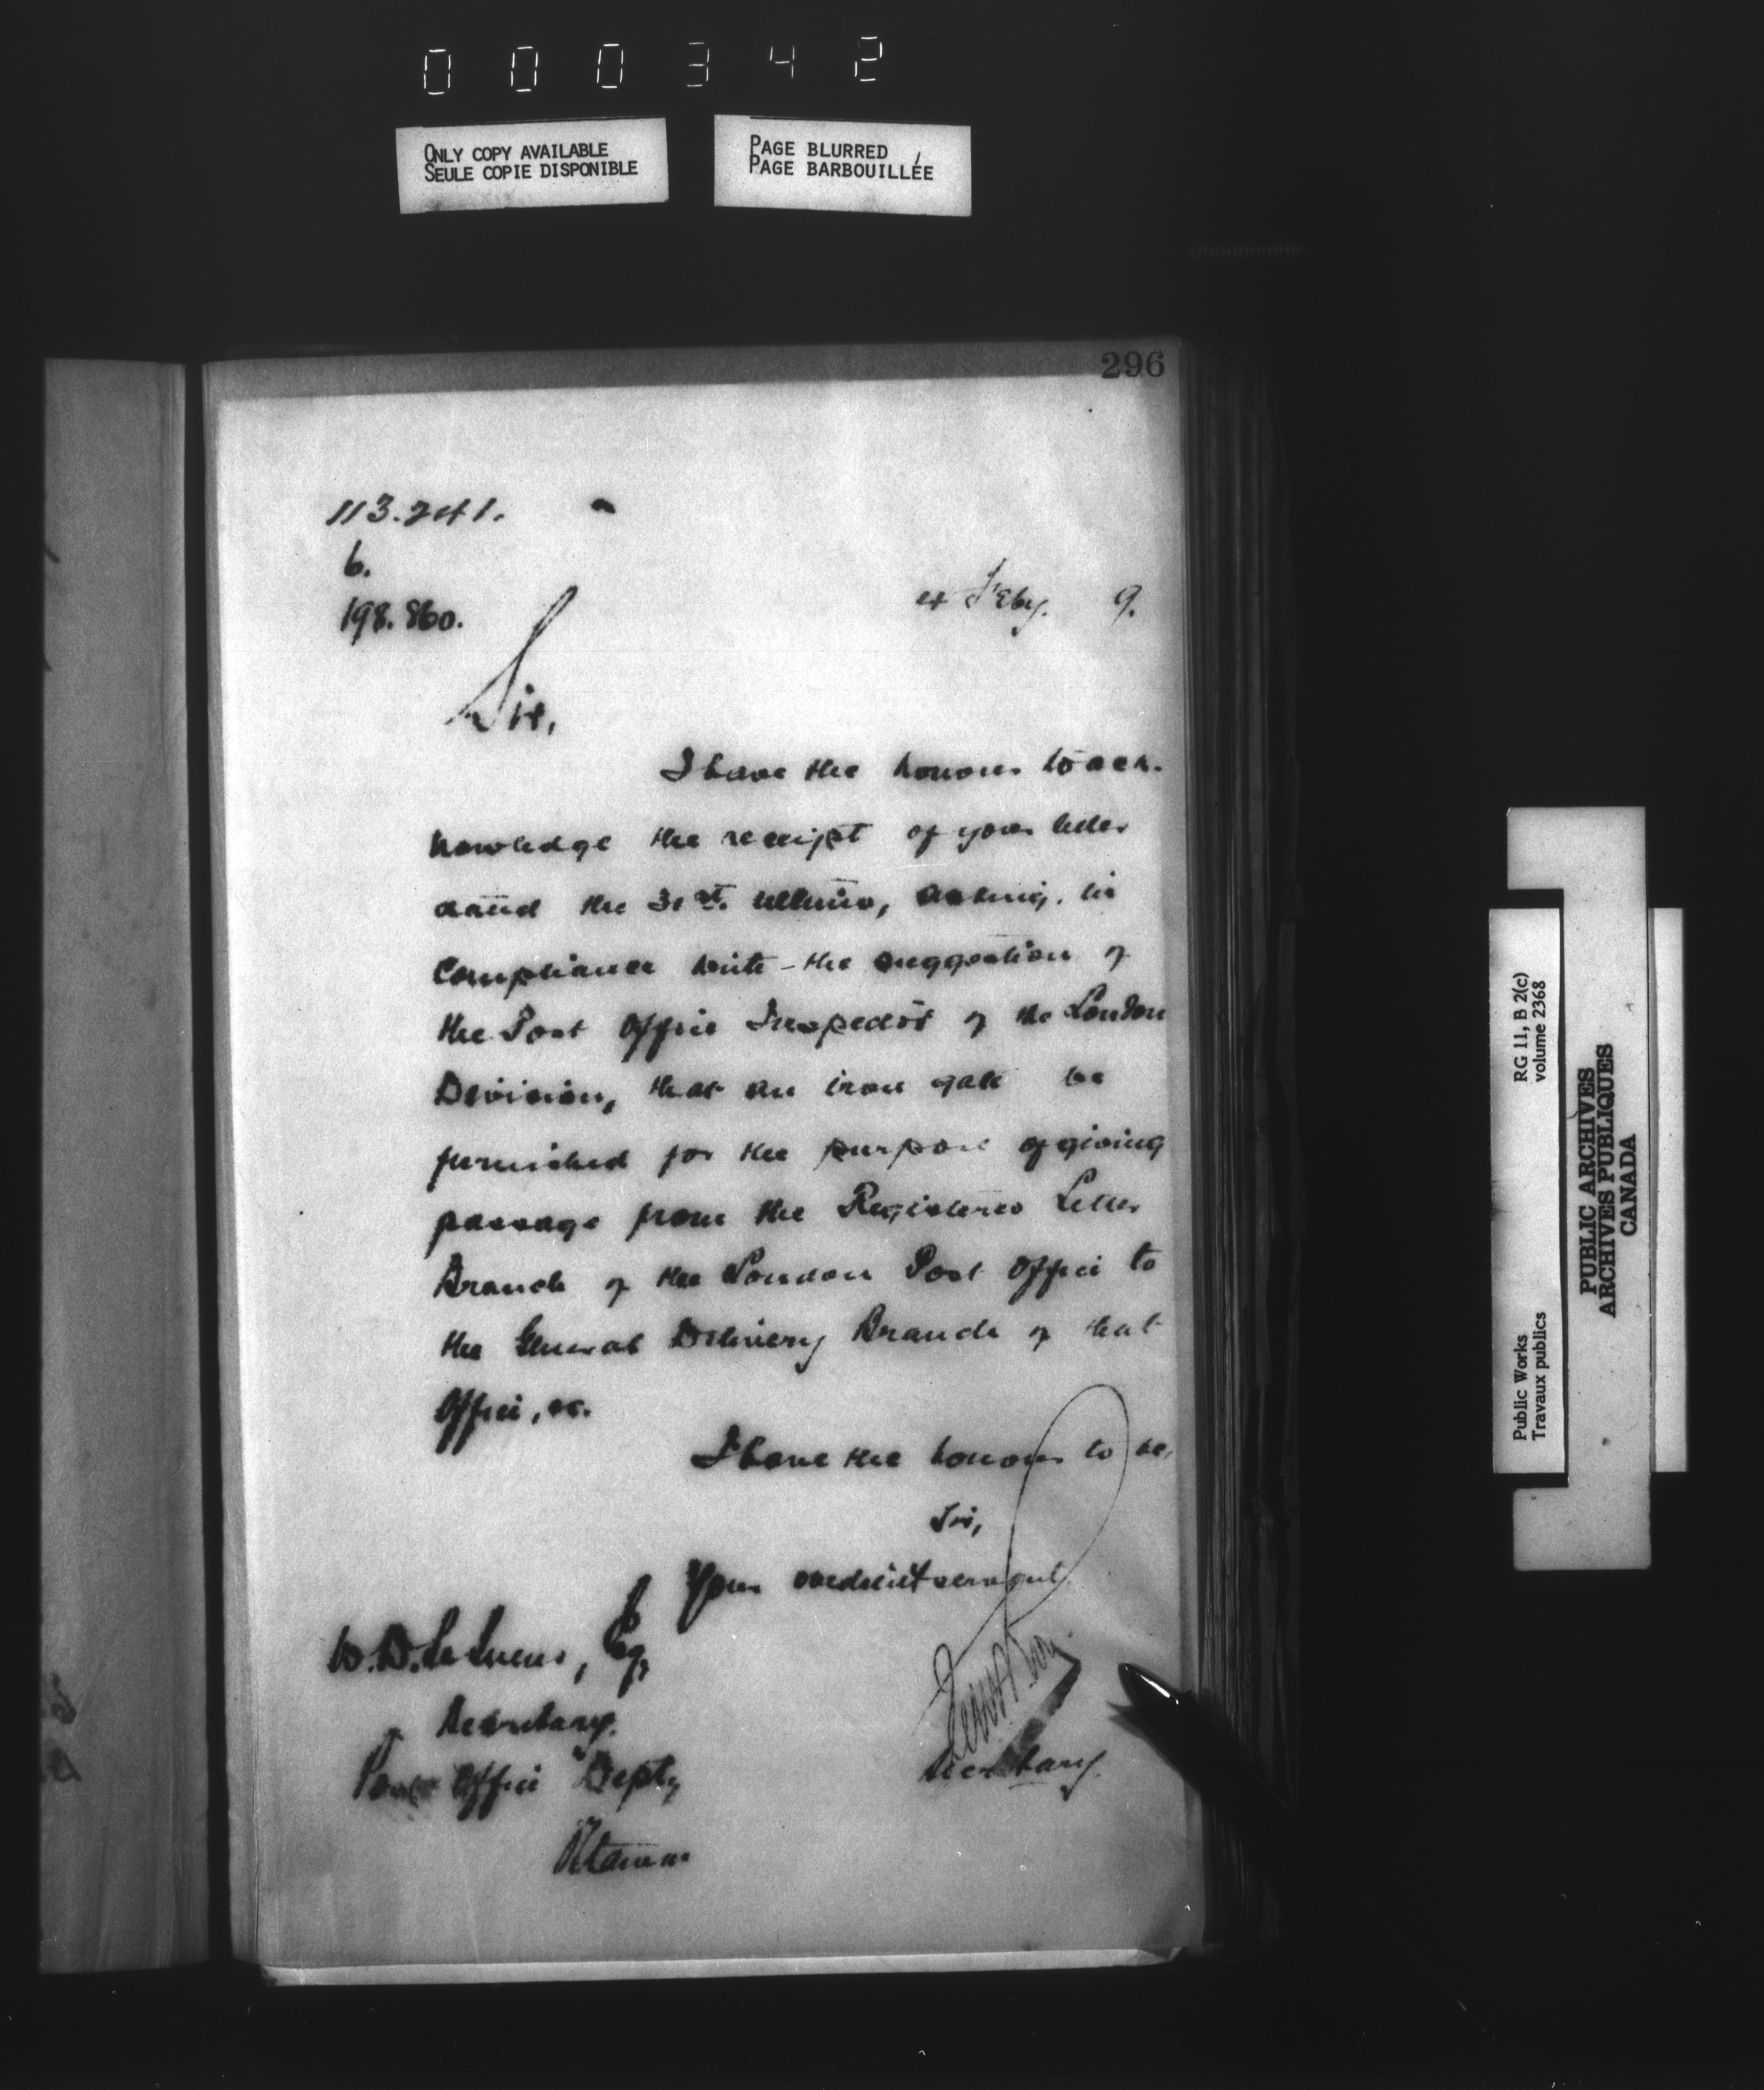 000342
ONLY COPY AVAILABLE
SEULE COPIE DISPONIBLE
PAGE BLURRED
PAGE BARBOUILLÉE
296
113.241.
6.
198.860.
4 Feby. 9.
Sir,
I have the honour to ack-
nowledge the receipt of your letter
dated the 31st. ultimo, asking, in
compliance with the suggestion of
the Post Office Inspector of the London
Division, that an iron gate be
furnished for the purpose of giving
passage from the Registered Letter
Branch of the London Post Office to
the General Delivery Branch of that
Office, &c.
I have the honour to be,
Sir,
Your obedient servant
W.D. LeSueur, Esq,
Secretary.
Post Office Dept,
Ottawa
Secretary.
Public Works
Travaux publics
RG 11, B 2(c)
volume 2368
PUBLIC ARCHIVES
ARCHIVES PUBLIQUES
CANADA